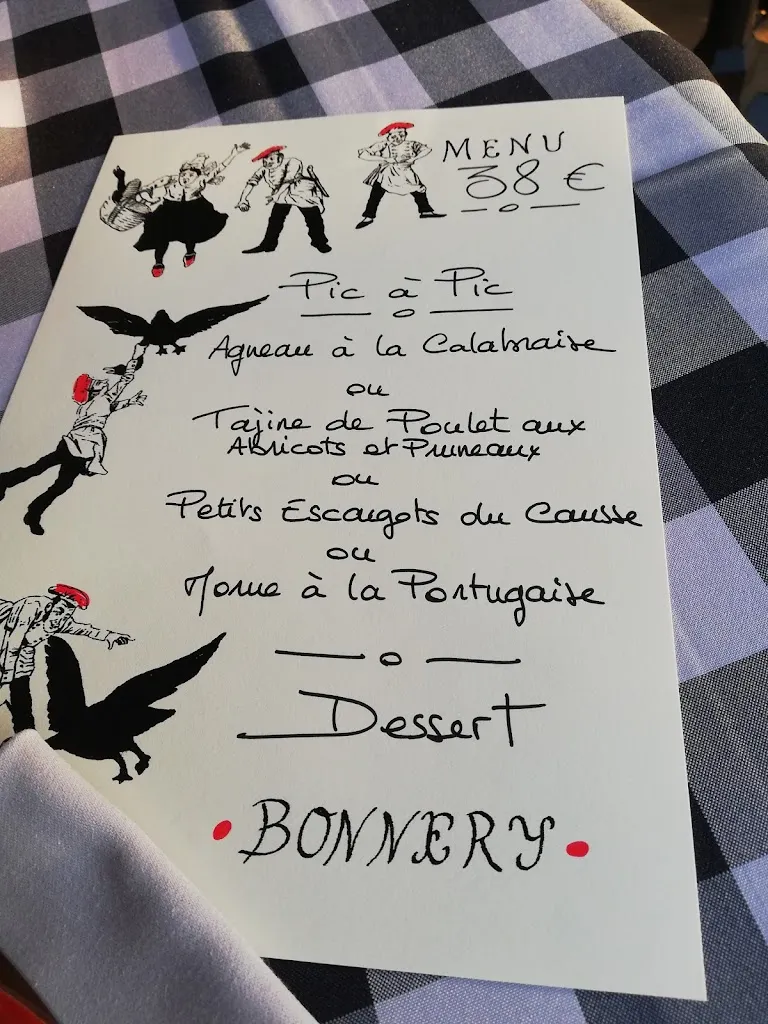 MENU
38 €
Pic à Pic
Agneau à la Calabraise
ou
Tajine de Poulet aux
Abricots et Pruneaux
ou
Petits Escargots du Causse
ou
Morue à la Portugaise
Dessert
BONNERY